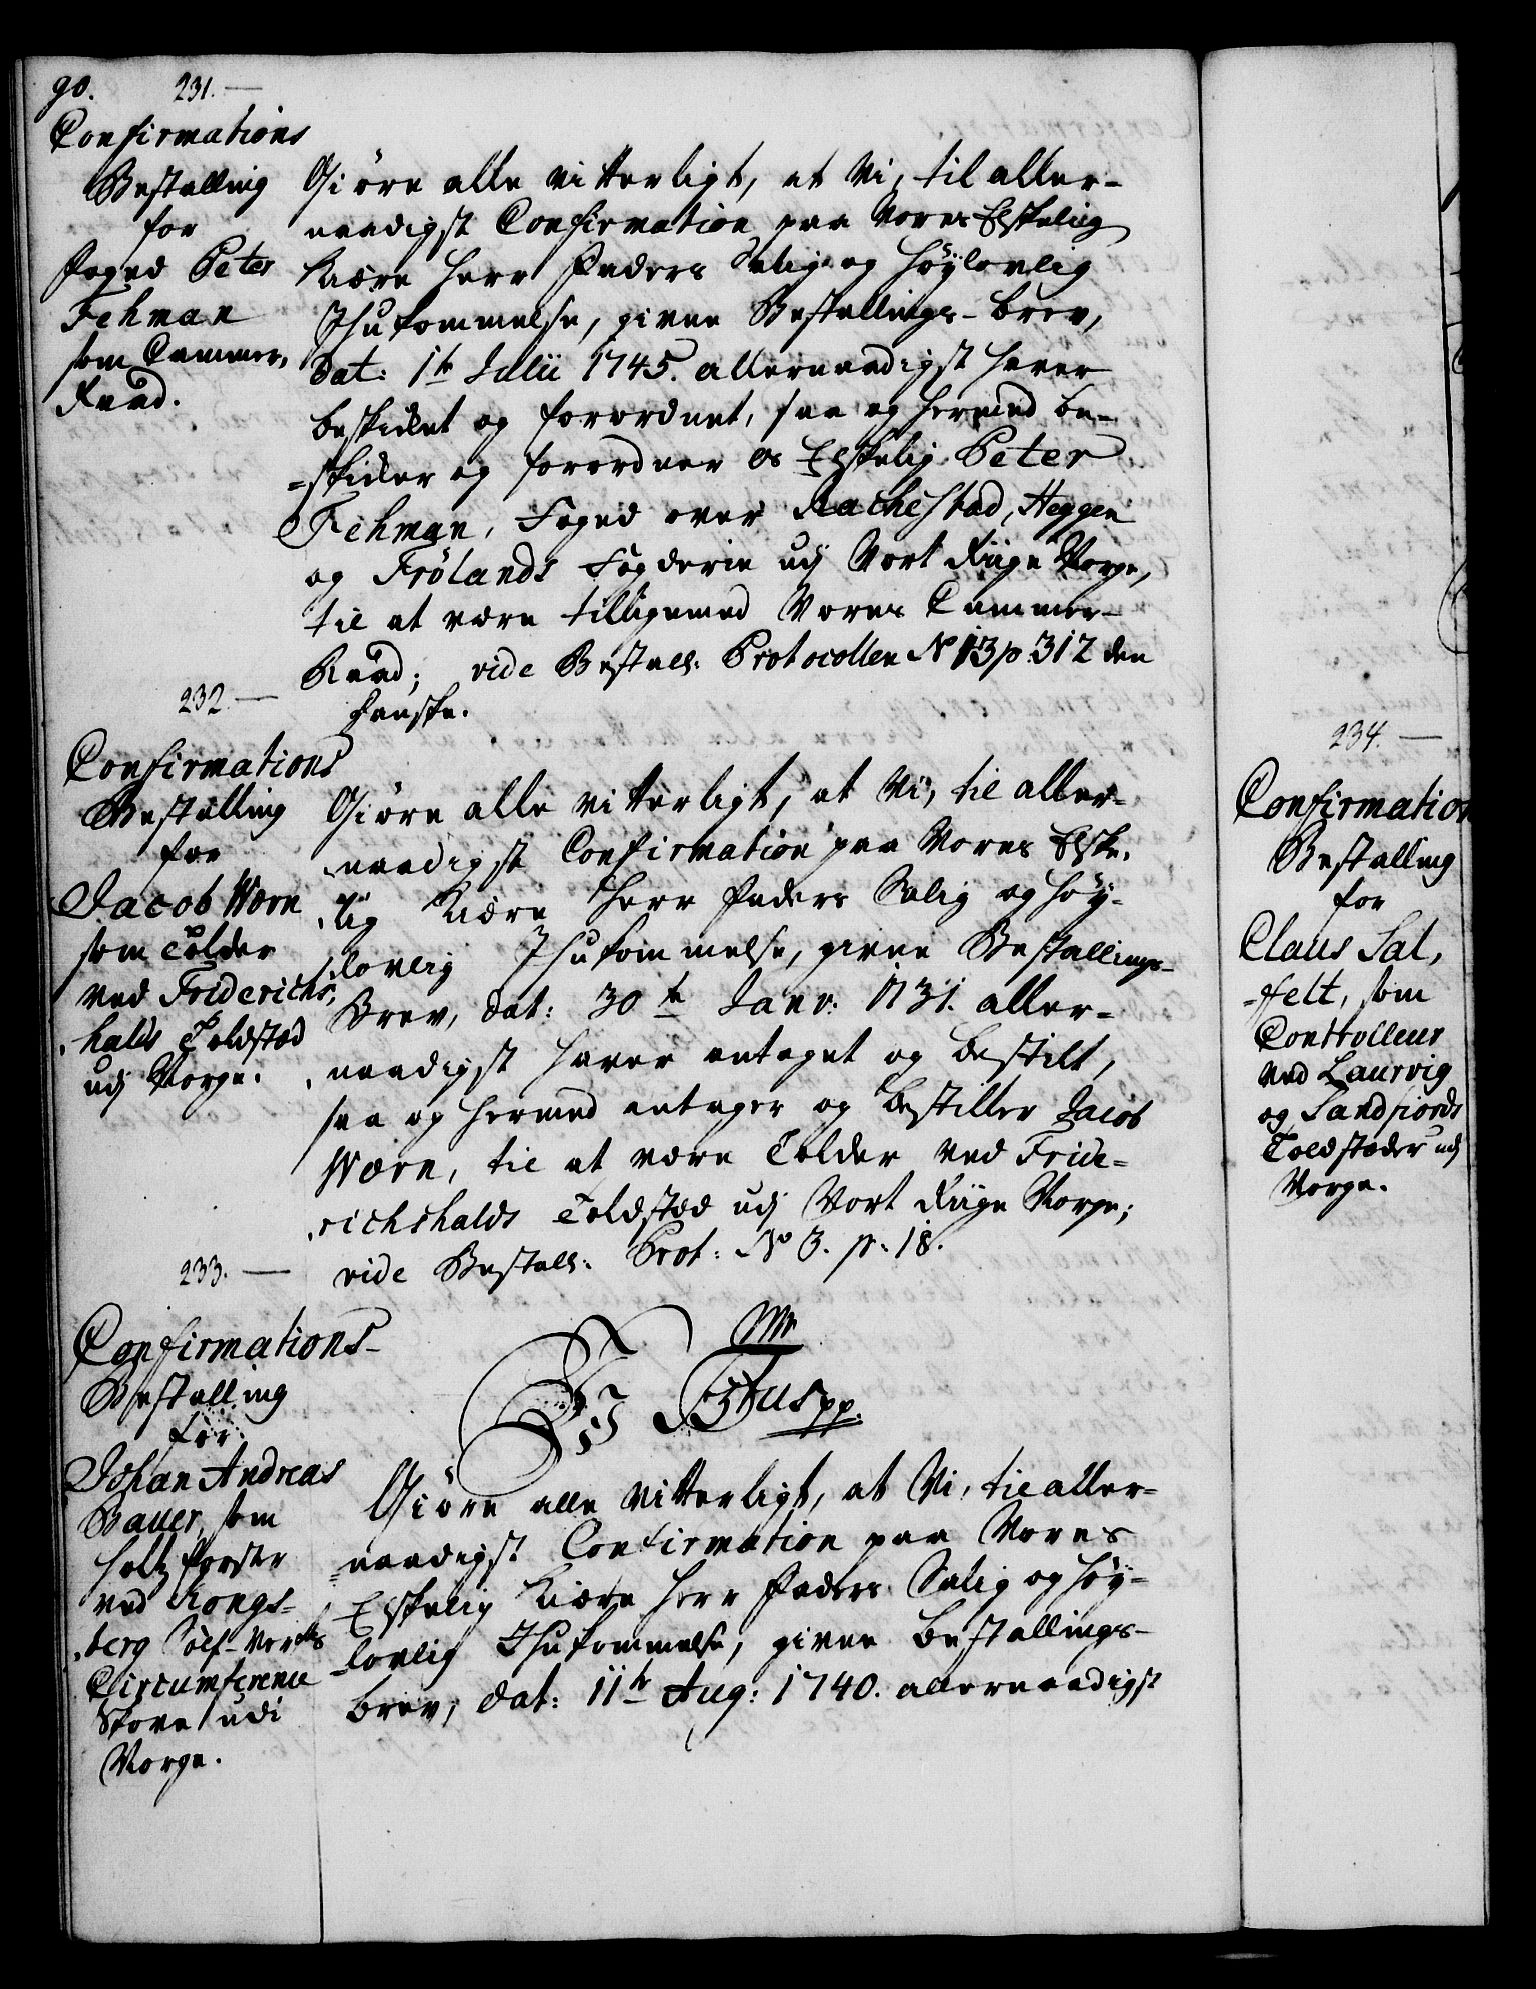 90.
231. —
Confirmations
Bestalling
for
Foged Peter
Fehman
som Cammer,
Raad.
Giöre alle vitterligt, at Vi, til aller-
naadigst Confirmation paa Vores Elskelig
Kiære Herr Faders Salig og Höylovlig
Ihukommelse, given Bestallings-Brev,
dat: 1te Julii 1745. allernaadigst haver
beskikket og forordnet, saa og hermed be-
=skikker og forordner Os Elskelig Peter
Fehman, Foged over Rachestad, Heggen
og Frölands Fogderie udj Vort Riige Norge,
til at være tilligemed Vores Cammer-
Raad; vide Bestall: Protocollen No 13 p. 312 den
Danske.
232. —
Confirmations
Bestalling
for
Jacob Wærn
som Tolder
ved Friderichs,
halds Toldsted
udj Norge.
Giöre alle vitterligt, at Vi, til aller-
naadigst Confirmation paa Vores Elske,
lig Kiære Herr Faders Salig og Höy-
lovlig Ihukommelse, given Bestallings-
Brev, dat: 30te Janv: 1731. aller-
naadigst haver antaget og bestilt,
saa og hermed antager og bestiller Jacob
Wærn, til at være Tolder ved Fride-
richshalds Toldsted udj Vort Riige Norge;
vide Bestall: Prot: No 3. p. 18.
233. —
Confirmations-
Bestalling
for
Johan Andreas
Bauer, som
Holtz Forster
ved Kongs-
berg Sölf-Verks
Circumference
Skove udi
Norge.
Giöre alle vitterligt, at Vi, til aller-
naadigst Confirmation paa Vores
Elskelig Kiære Herr Faders Salig og Höy-
lovlig Ihukommelse, given Bestallings-
brev, dat: 11te Aug: 1740. allernaadigst
234. —
Confirmation
Bestalling
for
Claus Sal,
-felt, som
Controlleur
ved Laurvig
og Sandfiords
Toldstæder udj
Norge.